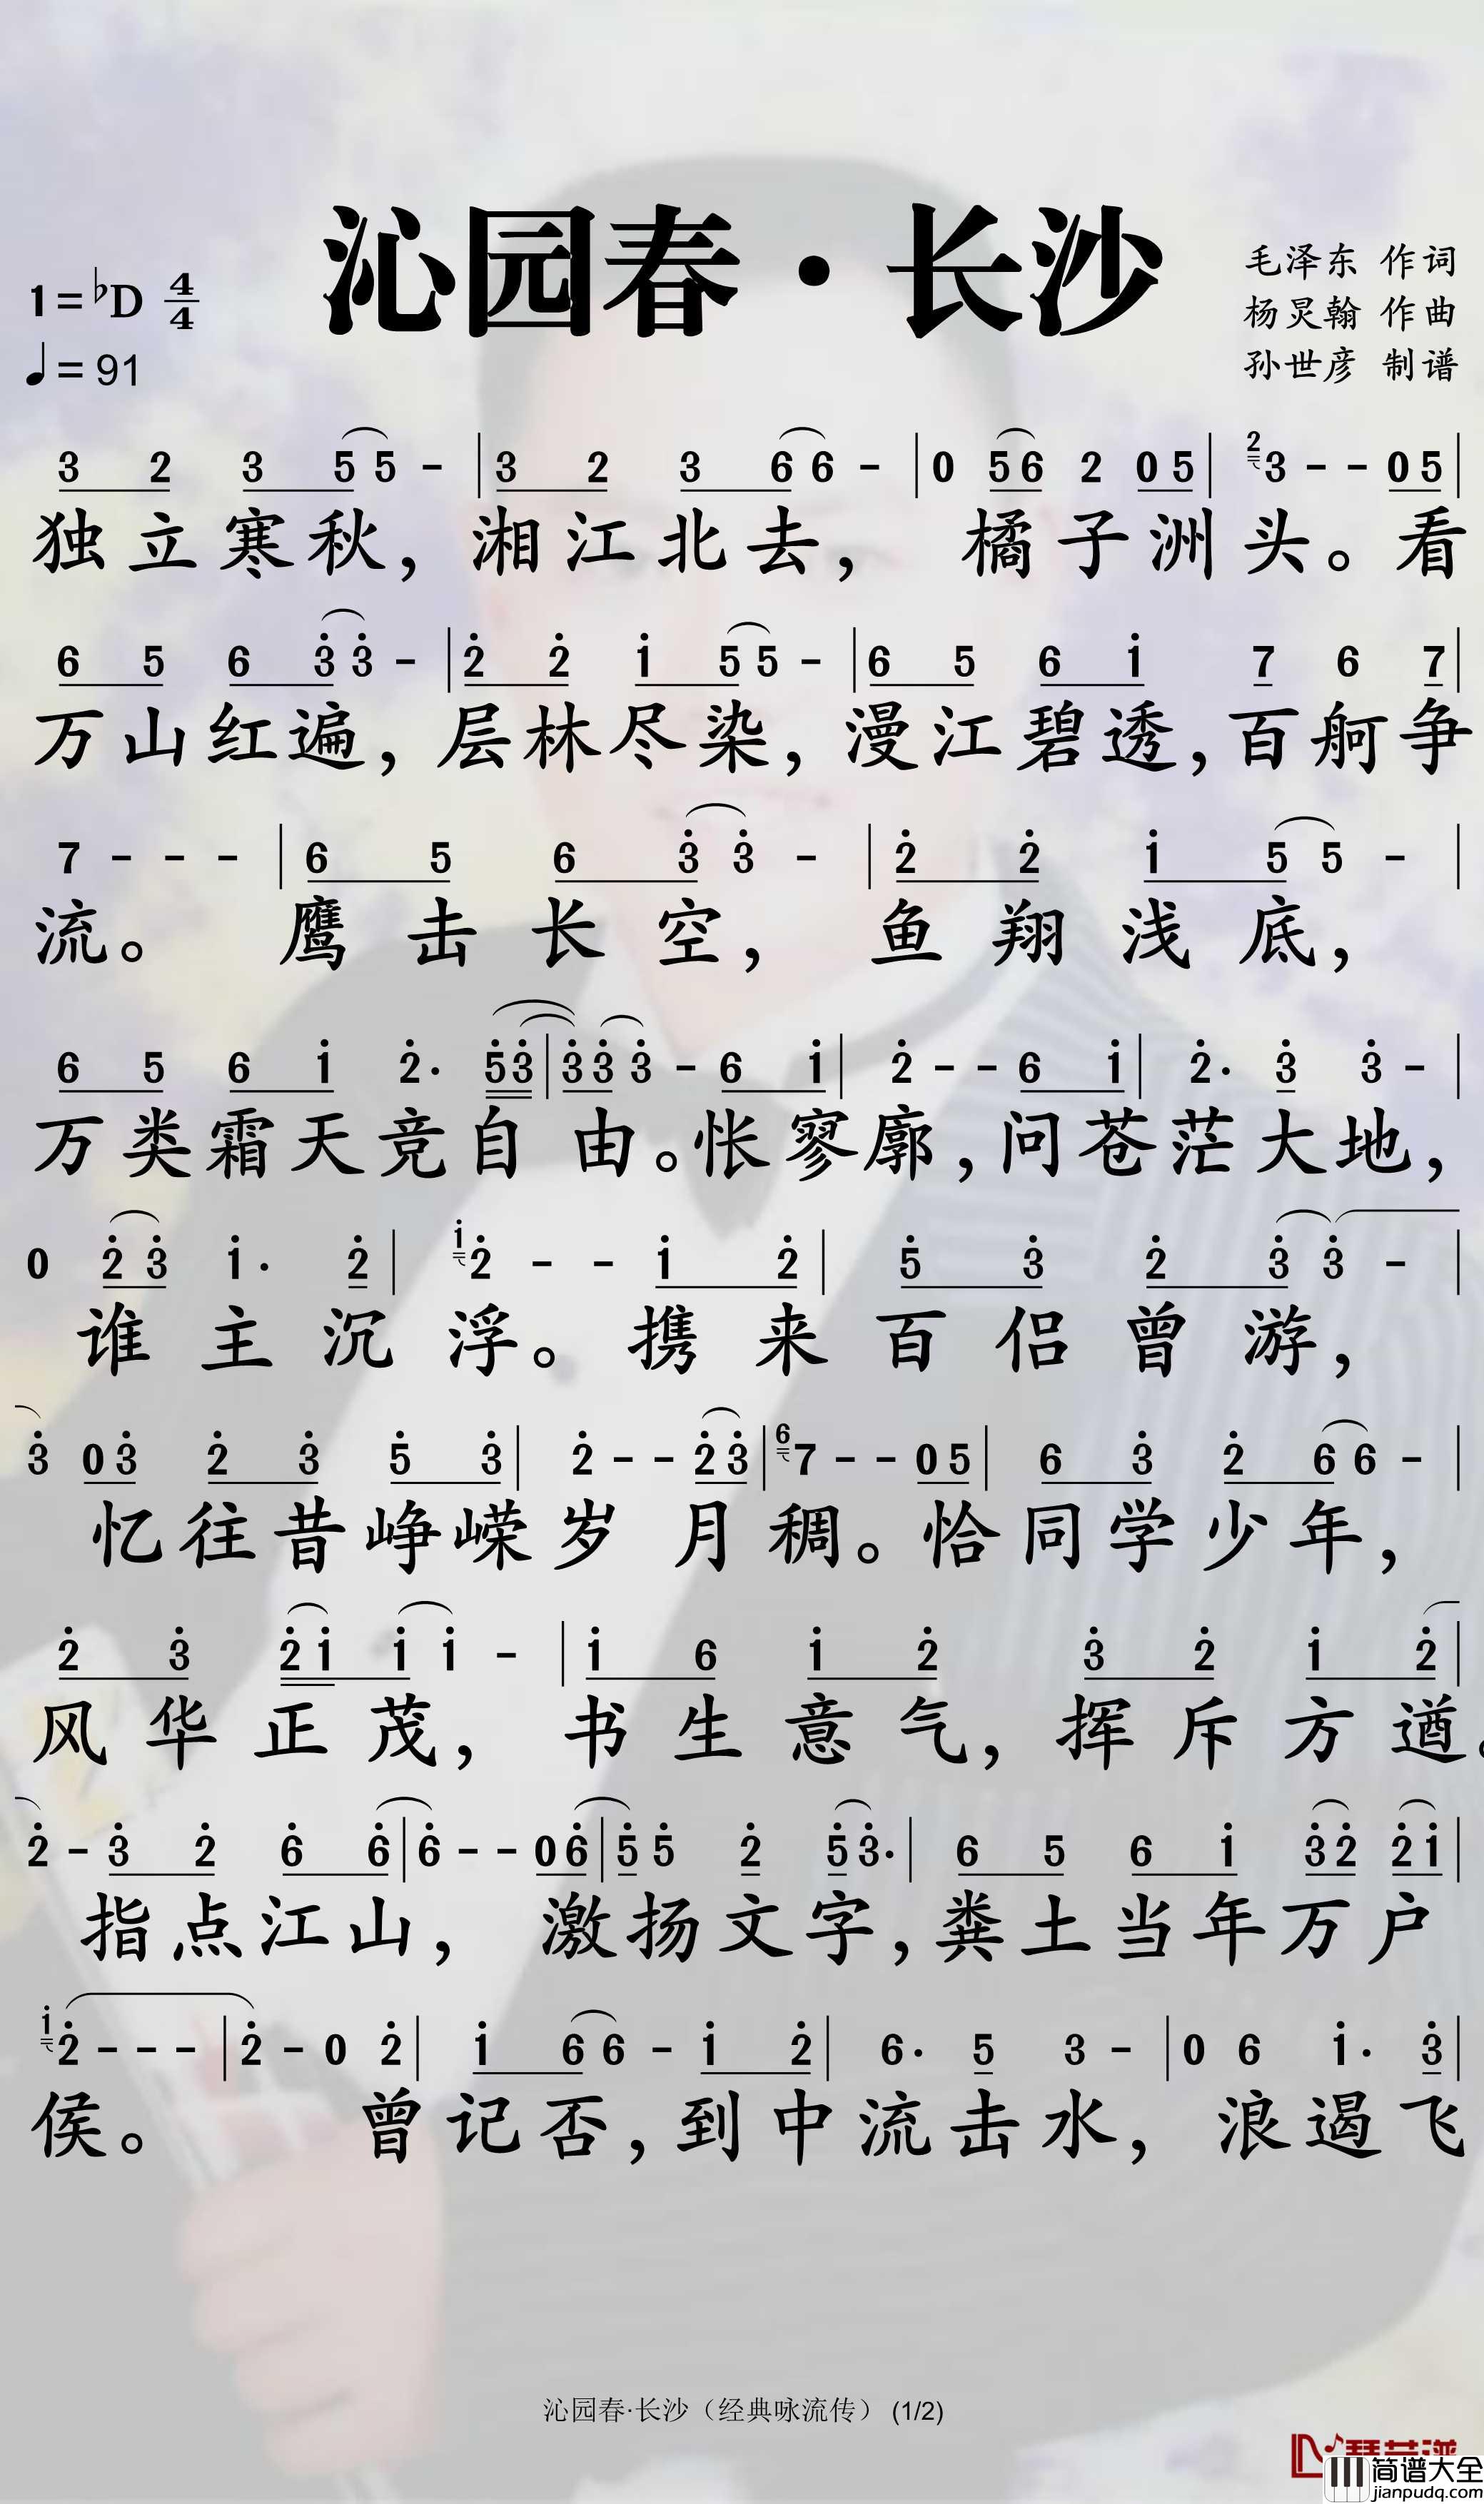 沁园春·长沙
1=♭D 4/4
♩=91
毛泽东 作词
杨炅翰 作曲
孙世彦 制谱
3 2 3 5 5 - | 3 2 3 6 6 - | 0 5 6 2 0 5 | 2 3 - - 0 5 |
独立寒秋，湘江北去， 橘子洲头。看
6 5 6 3 3 - | 2 2 1 5 5 - | 6 5 6 1 7 6 7 |
万山红遍，层林尽染，漫江碧透，百舸争
7 - - - | 6 5 6 3 3 - | 2 2 1 5 5 - |
流。 鹰击长空， 鱼翔浅底，
6 5 6 1 2· 5 3 | 3 3 3 - 6 1 | 2 - - 6 1 | 2· 3 3 - |
万类霜天竞自由。怅寥廓，问苍茫大地，
0 2 3 1· 2 | 1 2 - - 1 2 | 5 3 2 3 3 - |
谁主沉浮。携来百侣曾游，
3 0 3 2 3 5 3 | 2 - - 2 3 | 6 7 - - 0 5 | 6 3 2 6 6 - |
忆往昔峥嵘岁月稠。恰同学少年，
2 3 2 1 1 1 - | 1 6 1 2 3 2 1 2 |
风华正茂，书生意气，挥斥方遒。
2 - 3 2 6 6 | 6 - - 0 6 | 5 5 2 5 3· | 6 5 6 1 3 2 2 1 |
指点江山， 激扬文字，粪土当年万户
1 2 - - - | 2 - 0 2 | 1 6 6 - 1 2 | 6· 5 3 - | 0 6 1· 3 |
侯。 曾记否，到中流击水，浪遏飞
沁园春·长沙（经典咏流传） (1/2)
简谱大全
jianpudq.com